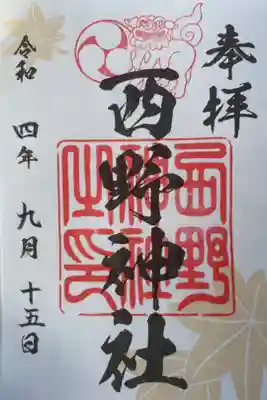 奉拝
西野神社
西野神社之印
令和四年九月十五日